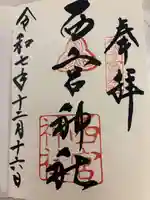 奉拝
西宮神社
令和七年十二月十六日